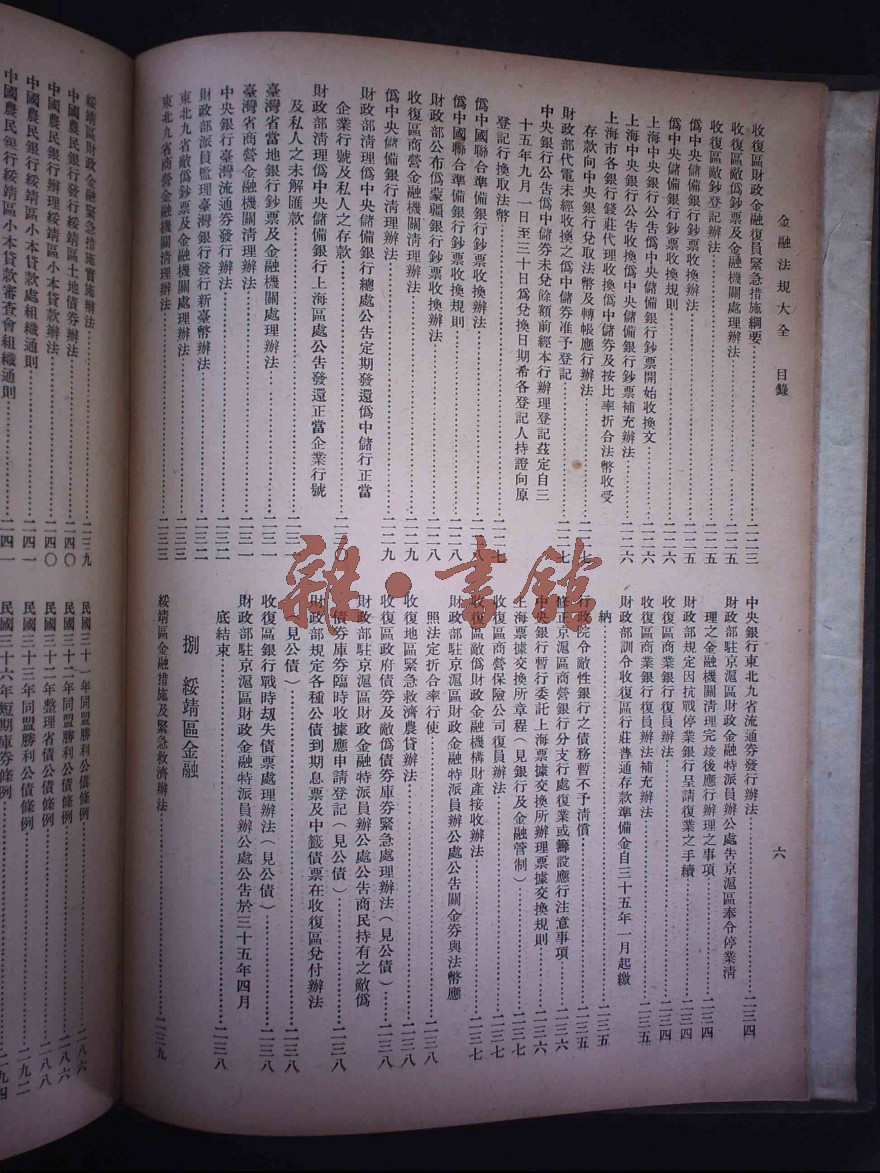 金融法規大全　目錄
六
收復區財政金融復員緊急措施綱要……二二三
收復區敵僞鈔票及金融機關處理辦法……二二五
收復區敵鈔登記辦法……二二五
僞中央儲備銀行鈔票收換辦法……二二五
僞中央儲備銀行鈔票收換規則……二二六
上海中央銀行公告僞中央儲備銀行鈔票開始收換文……二二六
上海中央銀行公告收換僞中央儲備銀行鈔票補充辦法……二二六
上海市各銀行錢莊代理收換僞中儲券及按比率折合法幣收受
存款向中央銀行兌取法幣及轉帳應行辦法……二二七
財政部代電未經收換之僞中儲券准予登記……二二七
中央銀行公告僞中儲券未兌餘額前經本行辦理登記茲定自三
十五年九月一日至三十日爲兌換日期希各登記人持證向原
登記行換取法幣……二二七
僞中國聯合準備銀行鈔票收換辦法……二二八
僞中國聯合準備銀行鈔票收換規則……二二八
財政部公布僞蒙疆銀行鈔票收換辦法……二二八
收復區商營金融機關清理辦法……二二九
僞中央儲備銀行清理辦法……二二九
財政部清理僞中央儲備銀行總處公告定期發還僞中儲行正當
企業行號及私人之存款……二三〇
財政部清理僞中央儲備銀行上海區處公告發還正當企業行號
及私人之未解匯款……二三一
臺灣省當地銀行鈔票及金融機關處理辦法……二三一
臺灣省商營金融機關清理辦法……二三一
中央銀行臺灣流通券發行辦法……二三二
財政部派員監理臺灣銀行發行新臺幣辦法……二三二
東北九省敵僞鈔票及金融機關處理辦法……二三三
東北九省商營金融機關清理辦法……二三三
中央銀行東北九省流通券發行辦法……二三四
財政部駐京滬區財政金融特派員辦公處吿京滬區奉令停業清
理之金融機關清理完竣後應行辦理之事項……二三四
財政部規定因抗戰停業銀行呈請復業之手續……二三四
收復區商業銀行復員辦法……二三四
收復區商業銀行復員辦法補充辦法……二三五
財政部訓令收復區行莊普通存款準備金自三十五年一月起繳
納……二三五
行政院令敵性銀行之債務暫不予清償……二三五
修正京滬區商營銀行分支行處復業或籌設應行注意事項……二三六
中央銀行暫行委託上海票據交換所辦理票據交換規則……二三六
上海票據交換所章程（見銀行及金融管制）……二三七
收復區商營保險公司復員辦法……二三七
收復區敵僞財政金融機構財產接收辦法……二三七
財政部駐京滬區財政金融特派員辦公處公告關金券與法幣應
照法定折合率行使……二三八
收復地區緊急救濟農貸辦法……二三八
收復區政府債券及敵僞債券庫券緊急處理辦法（見公債）……二三八
財政部駐京滬區財政金融特派員辦公處公告商民持有之敵僞
債券庫券臨時收據應申請登記（見公債）……二三八
財政部規定各種公債到期息票及中籤債票在收復區兌付辦法
（見公債）……二三八
收復區銀行戰時刼失債票處理辦法（見公債）……二三八
財政部駐京滬區財政金融特派員辦公處公告於三十五年四月
底結束……二三八
捌　綏靖區金融
綏靖區金融措施及緊急救濟辦法……二三九
綏靖區財政金融緊急措施實施辦法……二三九
中國農民銀行發行綏靖區土地債券辦法……二四〇
中國農民銀行辦理綏靖區小本貸款辦法……二四〇
中國農民銀行綏靖區小本貸款處組織通則……二四一
中國農民銀行綏靖區小本貸款審查會組織通則……二四一
民國三十一年同盟勝利公債條例……二八六
民國三十二年同盟勝利公債條例……二八六
民國三十二年整理省債公債條例……二八八
民國三十三年同盟勝利公債條例……二九二
民國三十六年短期庫券條例……二九四
雜·書館